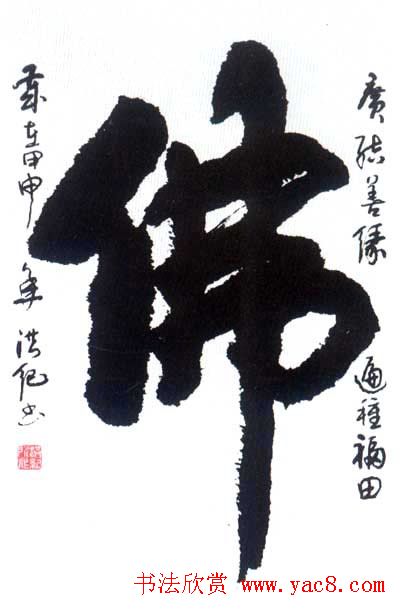 廣結善緣 遍種福田
佛
歲在甲申年 洪紀書
书法欣赏 www.yac8.com